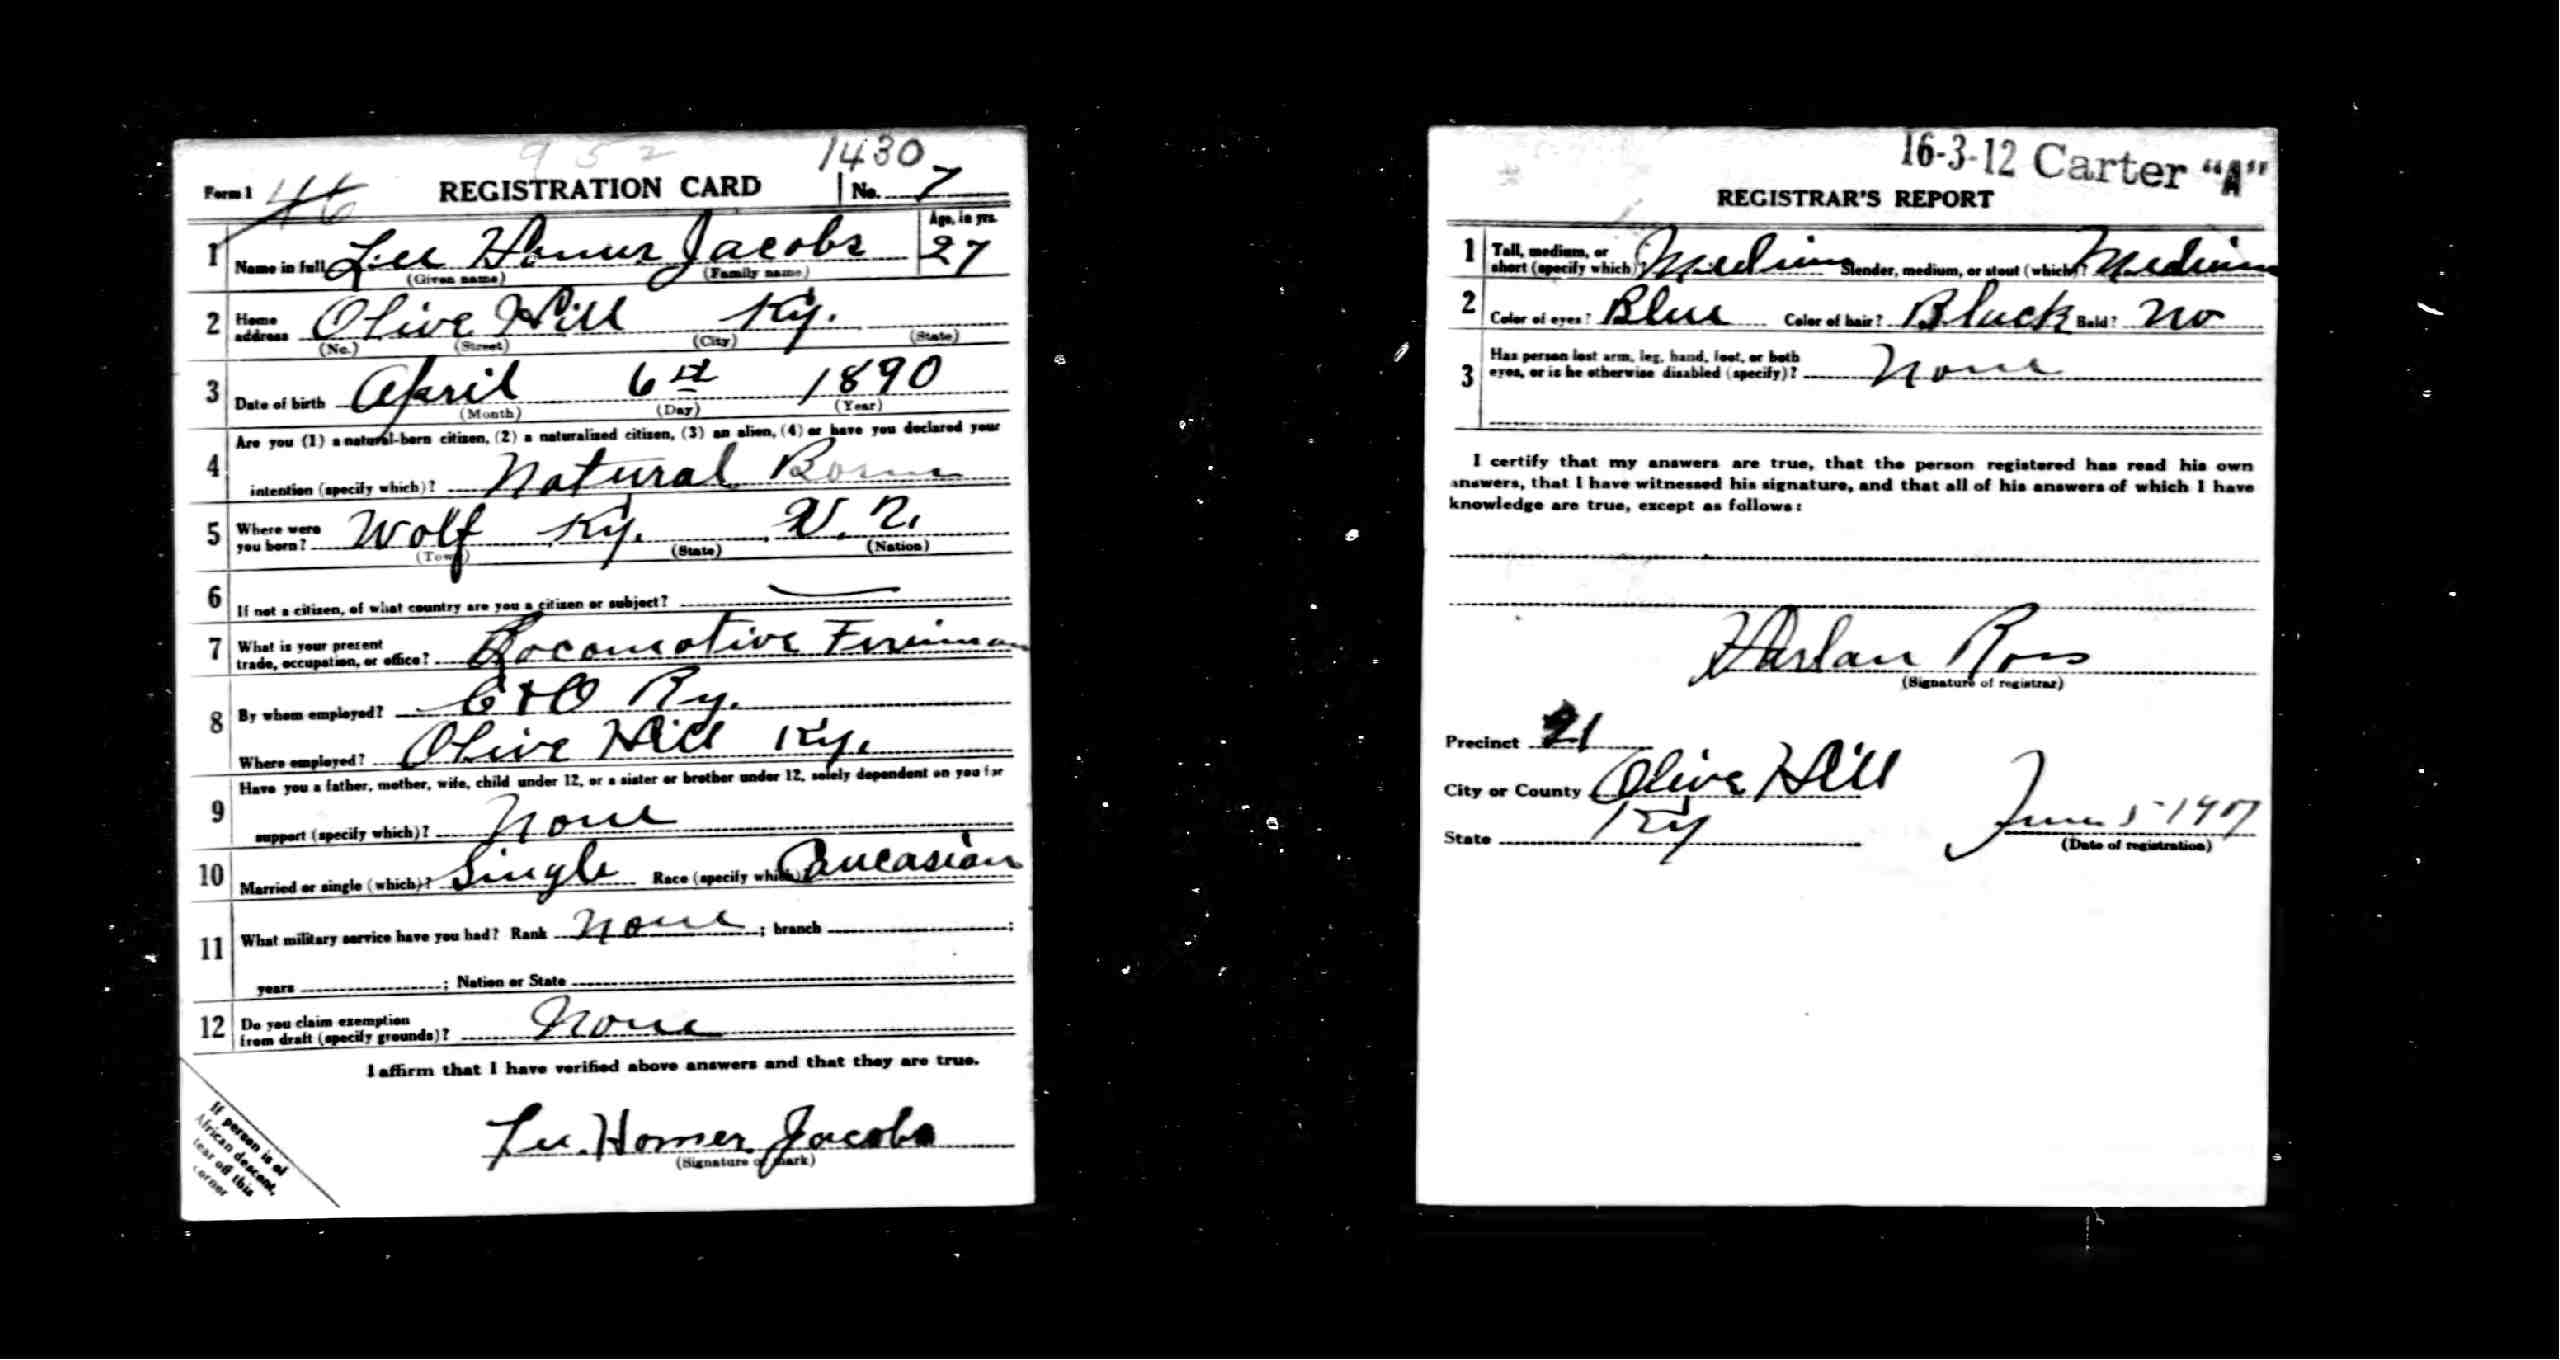 952
1430
Form 1 46 REGISTRATION CARD No. 7
1 Name in full Lee Homer Jacobs Age, in yrs. 27
(Given name) (Family name)
2 Home address Olive Hill Ky.
(No.) (Street) (City) (State)
3 Date of birth April 6th 1890
(Month) (Day) (Year)
Are you (1) a natural-born citizen, (2) a naturalized citizen, (3) an alien, (4) or have you declared your
4 intention (specify which)? Natural Born
5 Where were you born? Wolf Ky.
(Town) (State) (Nation)
6 If not a citizen, of what country are you a citizen or subject? —
7 What is your present
trade, occupation, or office? Locomotive Fireman
8 By whom employed? C & O Ry.
Where employed? Olive Hill Ky.
Have you a father, mother, wife, child under 12, or a sister or brother under 12, solely dependent on you for
9 support (specify which)? None
10 Married or single (which)? Single Race (specify which)? Caucasian
11 What military service have you had? Rank None ; branch ;
years ; Nation or State
12 Do you claim exemption
from draft (specify grounds)? None
I affirm that I have verified above answers and that they are true.
Lee Homer Jacobs
(Signature or mark)
If person is of
African descent,
tear off this
corner
16-3-12 Carter "A"
REGISTRAR'S REPORT
1 Tall, medium, or
short (specify which)? Medium Slender, medium, or stout (which)? Medium
2 Color of eyes? Blue Color of hair? Black Bald? No
Has person lost arm, leg, hand, foot, or both
3 eyes, or is he otherwise disabled (specify)? None
I certify that my answers are true, that the person registered has read his own
answers, that I have witnessed his signature, and that all of his answers of which I have
knowledge are true, except as follows:
Harlan Ross
(Signature of registrar)
Precinct 21
City or County Olive Hill
State Ky June 5-1917
(Date of registration)